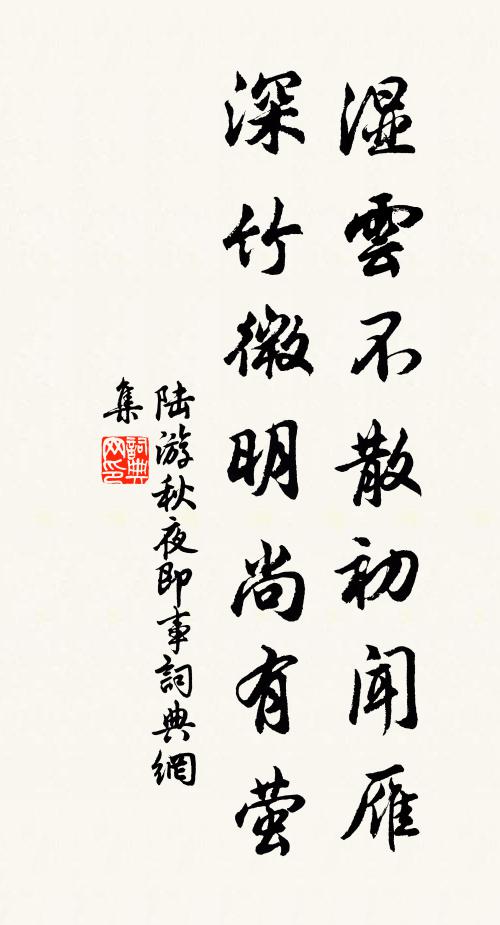 湿雲不散初聞雁
深竹微明尚有萤
陆游秋夜即事詞典網
集
詞典网印